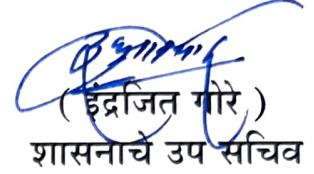 ( इंद्रजित गोरे )
शासनाचे उप सचिव